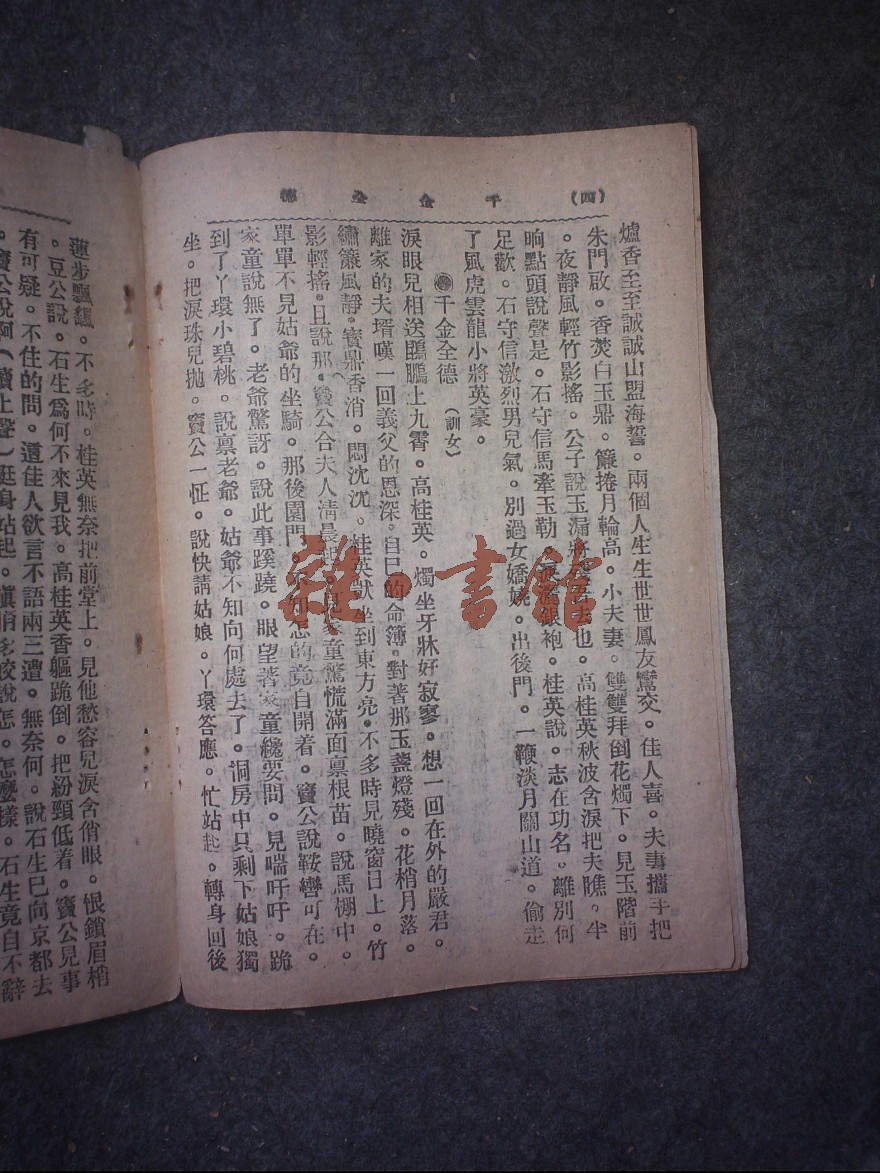 (四) 千金全德
爐香至至誠誠山盟海誓。兩個人生生世世鳳友鸞交。佳人喜。夫妻攜手把
朱門啟。香焚白玉鼎。簾捲月輪高。小夫妻。雙雙拜倒花燭下。見玉階前
。夜靜風輕竹影搖。公子說玉漏將殘吾去也。高桂英秋波含淚把夫瞧。半
晌點頭說聲是。石守信馬牽玉勒。銀袍。桂英說。志在功名。離別何
足歡。石守信激烈男兒氣。別過女嬌娆。出後門。一鞭淡月關山道。偷走
了風虎雲龍小將英豪。
千金全德 (訓女)
淚眼兒相送鵾鵬上九霄。高桂英。燭坐牙牀好寂寥。想一回在外的嚴君。
離家的夫壻嘆一回義父的恩深。自巳的命簿。對著那玉盞燈殘。花梢月落。
繡簾風靜。寶鼎香消。悶沈沈。桂英獃坐到東方亮。不多時見曉窗日上。竹
影輕搖。且說那。竇公合夫人清晨起。見家童驚慌滿面禀根苗。說馬棚中。
單單不見姑爺的坐騎。那後園門。不知怎的竟自開着。竇公說鞍轡可在。
家童說無了。老爺驚訝。說此事蹊蹺。眼望著家童纔要問。見喘吁吁。跪
到了丫環小碧桃。說禀老爺。姑爺不知向何處去了。洞房中只剩下姑娘獨
坐。把淚珠兒抛。竇公一怔。說快請姑娘。丫環答應。忙站起。轉身回後
蓮步飄飄。不多時。桂英無奈把前堂上。見他愁容兒淚含俏眼。恨鎖眉梢
。豆公說。石生爲何不來見我。高桂英香軀跪倒。把粉頸低着。竇公見事
有可疑。不住的問。這佳人欲言不語兩三遭。無奈何。說石生巳向京都去
。竇公說啊(讀上聲)挺身站起。說怎。怎麼樣。石生竟自不辭
雜·書館